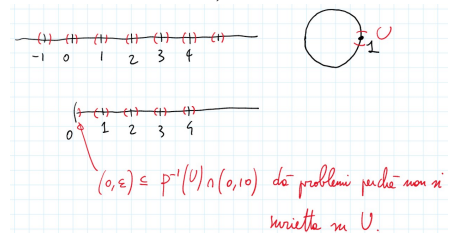 U
1
-1 0 1 2 3 4
0 1 2 3 4
(0, ε) ⊆ p⁻¹(U) ∩ (0,10) dà problemi perché non si
surietta su U.